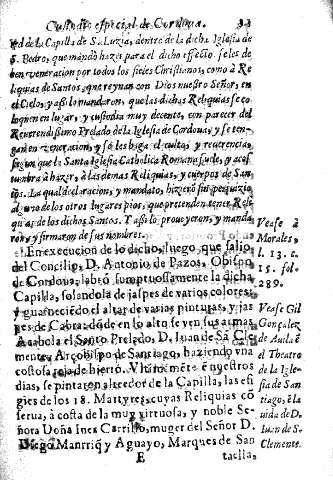 Custodio especial de Cordoua. 33
ed de la Capilla de S. Luzia, dentro de la dicha Iglesia de
S. Pedro, que mandò hazer para el dicho effecto. se les de
ben veneracion por todos los fieles Christianos, como à Re
liquias de Santos, que reynan con Dios nuestro Señor, en
el Cielo, y assi lo mandaron, que las dichas Reliquias se co
loquen en lugar, y custodia muy decente, con parecer del
Reuerendissimo Prelado de la Iglesia de Cordoua, y se ten-
gan en veneracion, y se les haga el culto, y reuerencia,
segun que la Santa Iglesia Catholica Romana suele, y acos
tumbra à hazer, à las demas Reliquias, y cuerpos de San-
tos. La qual declaracion, y mandato, hizerõ sin perjuizio
alguno de los otros lugares pios, que pretenden tener Reli
quias de los dichos Santos. Y assi lo proueyeron, y manda
ron, y firmaron de sus nombres.
En execucion de lo dicho, luego, que saliò
del Concilio, D. Antonio de Pazos, Obispo
de Cordoua, labrò sumptuosamente la dicha
Capilla, solandola de jaspes de varios colores,
y guarneciedo el altar de varias pinturas, y jas
pes de Cabra: desde en lo alto se ven sus armas.
Acabola el Santo Prelado, D. Iuan de Sã Cle
mente, Arçobispo de Santiago, haziendo vna
costosa reja de hierro. Vltimamẽte ẽ nuestros
dias, se pintaron alrededor de la Capilla, las esi
gies de los 18. Martyres, cuyas Reliquias cõ
serua, à costa de la muy virtuosa, y noble Se-
ñora Doña Ines Carrillo, muger del Señor D.
Diego Manrriq̃ y Aguayo, Marques de San
E taella,
Vease à
Morales,
l. 13. c.
15. fol.
289.
Vease Gil
Gonçalez
de Auila ẽ
el Theatro
de la Igle
sia de San
tiago, ẽ la
vida de D.
Iuan de S.
Clemente.